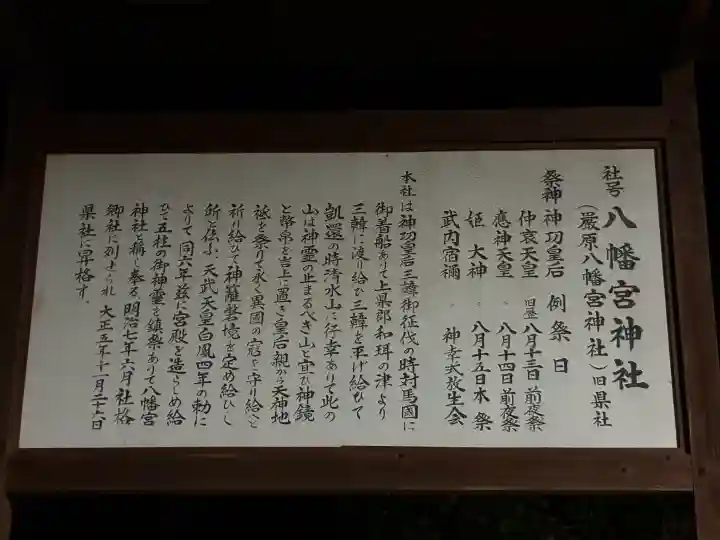 社号 八幡宮神社
(厳原八幡宮神社)旧県社
祭神 神功皇后 例祭日
仲哀天皇 旧暦八月十三日前夜祭
應神天皇 〃八月十四日前夜祭
姫大神 〃八月十五日本祭
武内宿禰 〃神幸大放生会
本社は神功皇后三韓御征伐の時対馬国に
御着船ありて上県郡和珥の津より
三韓に渡り給ひ三韓を平げ給ひて
凱還の時清水山に行幸ありて此の
山は神霊の止まるべき山と宣ひ神鏡
と幣帛を岩上に置き皇后親から天神地
祇を祭りて永く異国の寇を守り給へと
祈り給ひて神籬磐境を定め給ひし
所と伝ふ、天武天皇白鳳四年の勅に
よりて同六年茲に宮殿を造らしめ給
ひて五社の御神霊を鎮祭ありて八幡宮
神社と称し奉る、明治七年六月社格
郷社に列せられ大正五年十一月二十六日
県社に昇格す。